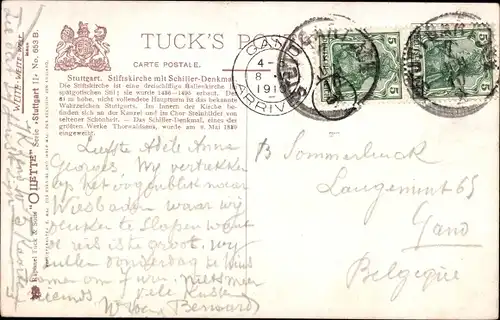 TUCK'S PO
CARTE POSTALE.
Stuttgart. Stiftskirche mit Schiller-Denkmal.
Die Stiftskirche ist eine dreischiffige Hallenkirche im
spätgotischen Stil; sie wurde 1436-1495 erbaut. Der
61 m hohe, nicht vollendete Hauptturm ist das bekannte
Wahrzeichen Stuttgarts. Im Innern der Kirche be-
finden sich an der Kanzel und im Chor Steinbilder von
seltener Schönheit. — Das Schiller-Denkmal, eines der
größten Werke Thorwaldsens, wurde am 8. Mai 1839
eingeweiht.
Serie „Stuttgart II" No. 663 B.
WEITE WEITE WELT
"OILETTE"
Raphael Tuck & Sons
GAND
4-
8
191
ARRIV
5
5
5
5
Liefste Adèle Anna
Georges, Wy vertrekken
op het oogenblik naar
Wiesbaden waar wy
denken te slapen want
de reis is te groot. Wy
zullen donderdag te huis
komen om 7 uur. niets meer
vele kussen
Bernard
Sommerbruck
Langemunt 65
Gand
Belgique